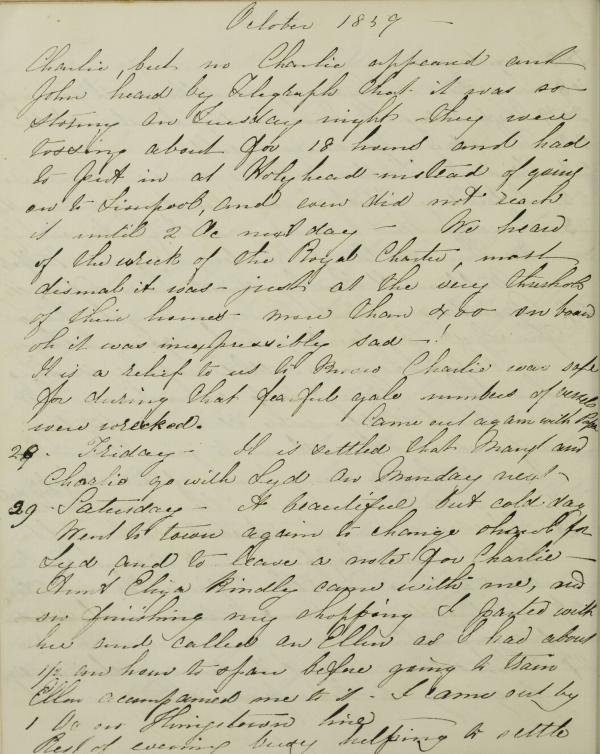 October 1859 -
Charlie, but no Charlie appeared and
John heard by Telegraph that it was so
stormy on Tuesday night - they were
tossing about for 18 hours and had
to put in at Holyhead instead of going
on to Liverpool, and even did not reach
it until 2 Oc next day - We heard
of the wreck of the Royal Charter, most
dismal it was - just at the very threshold
of their homes - more than 400 on board
oh it was inexpressibly sad - !
It is a relief to us to know Charlie was safe
for during that fearful gale numbers of vessels
were wrecked. Came out again with Papa
28. Friday - It is settled that Mary and
Charlie go with Lyd on Monday next -
29 Saturday - A beautiful but cold day
Went to town again to change for
Lyd and to leave a note for Charlie -
Aunt Eliza kindly came with me, and
on finishing my shopping I parted with
her and called on Ellen as I had about
1/2 an hour to span before going to train
Ellen acompanied me to it - I came out by
1 Oc on Kingstown line
Rest of evening busy helping to settle